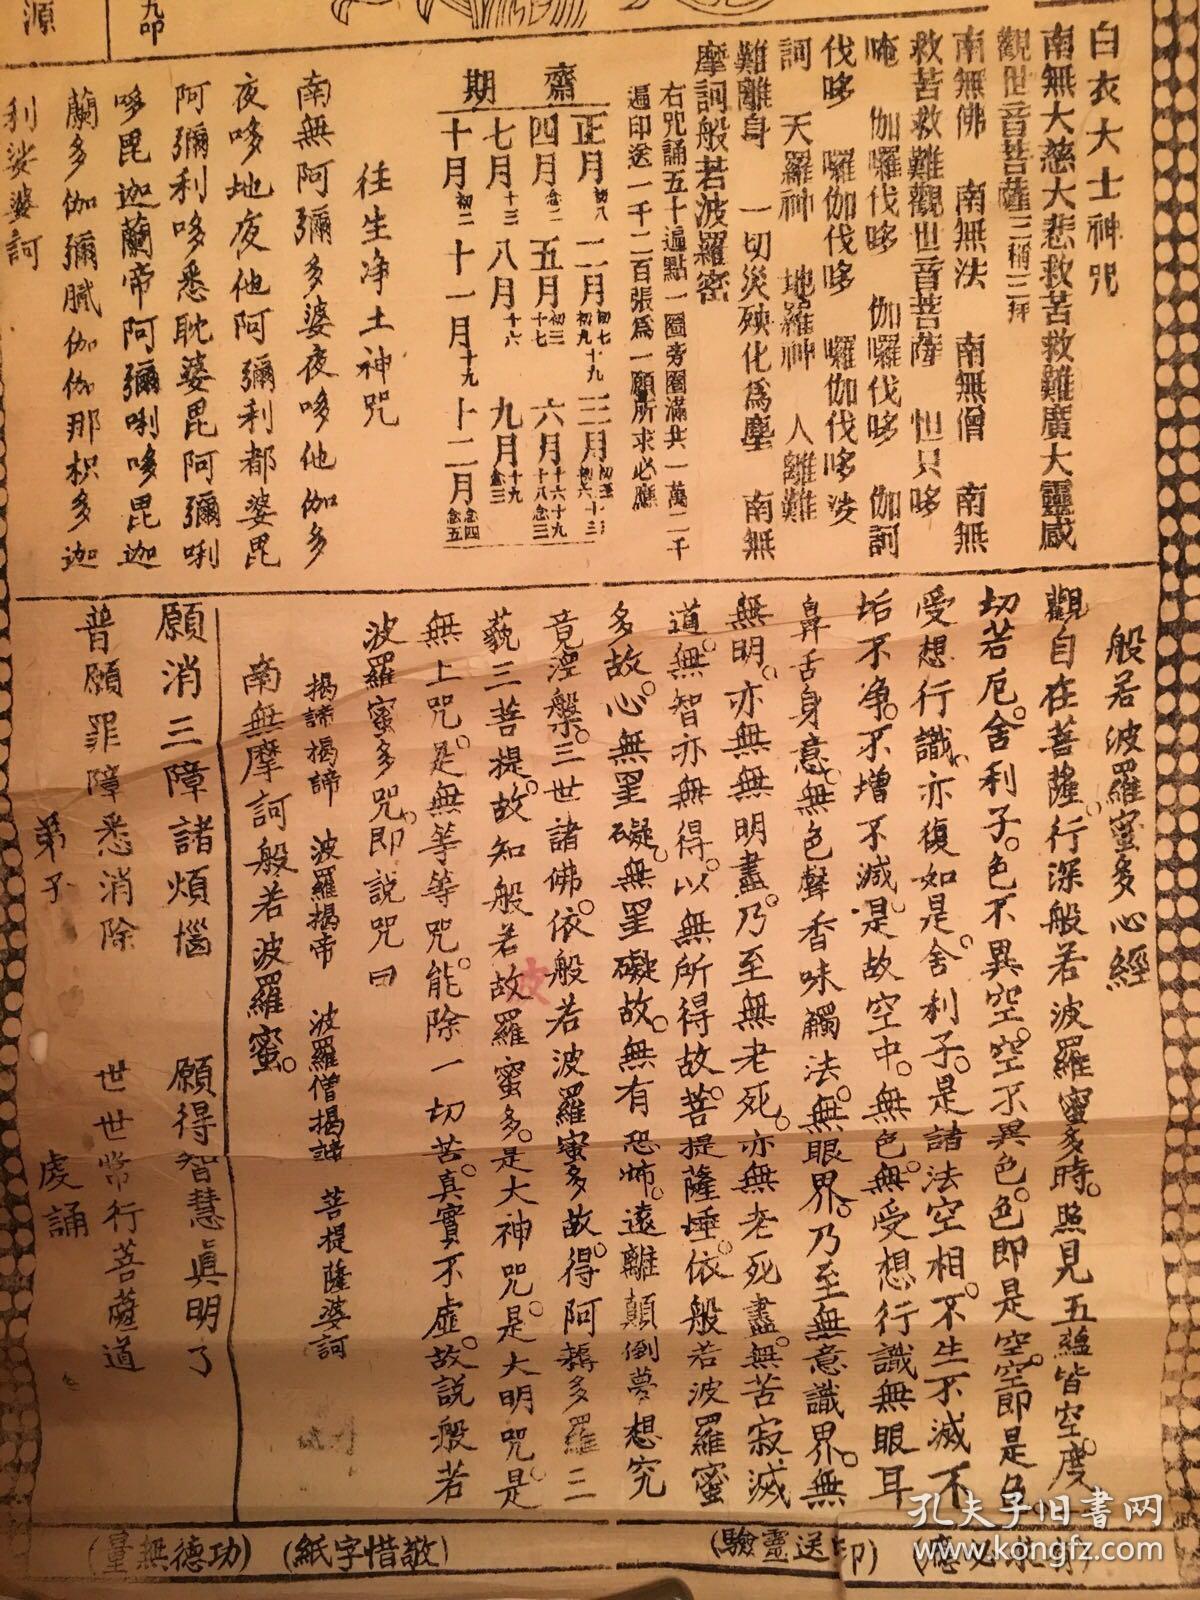 源
九叩
白衣大士神咒
南無大慈大悲救苦救難廣大靈感
觀世音菩薩三稱三拜
南無佛　南無法　南無僧　南無
救苦救難觀世音菩薩　怛只哆
唵　伽囉伐哆　伽囉伐哆　伽訶
伐哆　囉伽伐哆　囉伽伐哆　娑
訶　天羅神　地羅神　人離難
難離身　一切災殃化為塵　南無
摩訶般若波羅密
右咒誦五十遍點一圈旁圈滿共一萬二千
遍印送一千二百張為一願所求必應
齋期
正月初八　二月初七初九十九　三月
四月念二　五月初三十七　六月十六十九十八念三
七月十三　八月十六　九月十九念三
十月初二　十一月十九　十二月念四念五
往生净土神咒
南無阿彌多婆夜哆他伽多
夜哆地夜他阿彌利都婆毘
阿彌利哆悉眈婆毘阿彌唎
哆毘迦蘭帝阿彌唎哆毘迦
蘭多伽彌膩伽伽那枳多迦
利娑婆訶
般若波羅蜜多心經
觀自在菩薩。行深般若波羅蜜多時。照見五蘊皆空。度
切若厄。舍利子。色不異空。空不異色。色即是空。空即是色
受想行識。亦復如是。舍利子。是諸法空相。不生不滅不
垢不净。不增不減。是故空中。無色。無受想行識無眼耳
鼻舌身意。無色聲香味觸法。無眼界。乃至無意識界。無
無明。亦無無明盡。乃至無老死。亦無老死盡。無苦寂滅
道。無智亦無得。以無所得故。菩提薩埵。依般若波羅蜜
多故。心無罣礙。無罣礙故。無有恐怖。遠離顛倒夢想究
竟涅槃。三世諸佛。依般若波羅蜜多故。得阿耨多羅三
藐三菩提。故知般若故羅蜜多。是大神咒。是大明咒。是
波
無上咒。是無等等咒。能除一切苦。真實不虛。故説般若
波羅蜜多咒。即説咒曰
揭諦揭諦　波羅揭帝　波羅僧揭諦　菩提薩婆訶
南無摩訶般若波羅蜜。
願消三障諸煩惱　願得智慧真明了
普願罪障悉消除　世世常行菩薩道
弟子　虔誦
(量無德功)
(紙字惜敬)
(驗靈送印)
孔夫子旧书网
www.kongfz.com